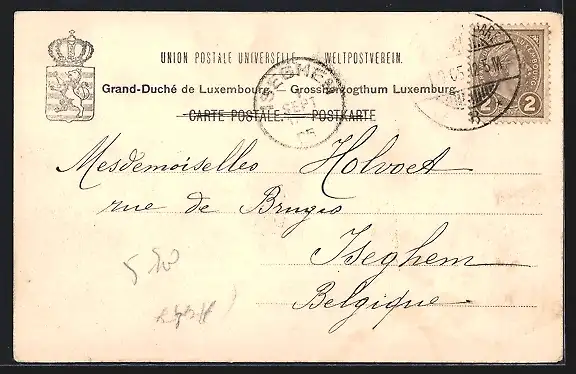 UNION POSTALE UNIVERSELLE. WELTPOSTVEREIN.
Grand-Duché de Luxembourg. Grossherzogthum Luxemburg.
CARTE POSTALE. — POSTKARTE
ISEGHEM
SEPT
05
2
Mesdemoiselles Holvoet
rue de Bruges
Iseghem
Belgique